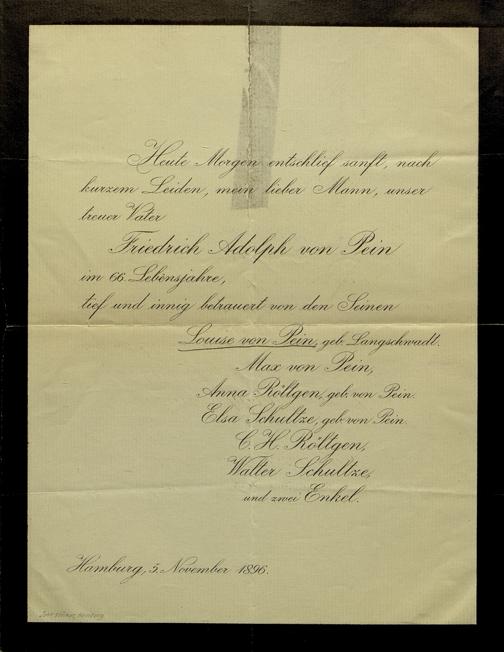 Heute Morgen entschlief sanft, nach
kurzem Leiden, mein lieber Mann, unser
treuer Vater
Friedrich Adolph von Pein
im 66. Lebensjahre,
tief und innig betrauert von den Seinen
Louise von Pein, geb. Langschwadt.
Max von Pein,
Anna Röltgen, geb. von Pein.
Elsa Schultze, geb. von Pein.
C. H. Röltgen,
Walter Schultze,
und zwei Enkel.
Hamburg, 5. November 1896.